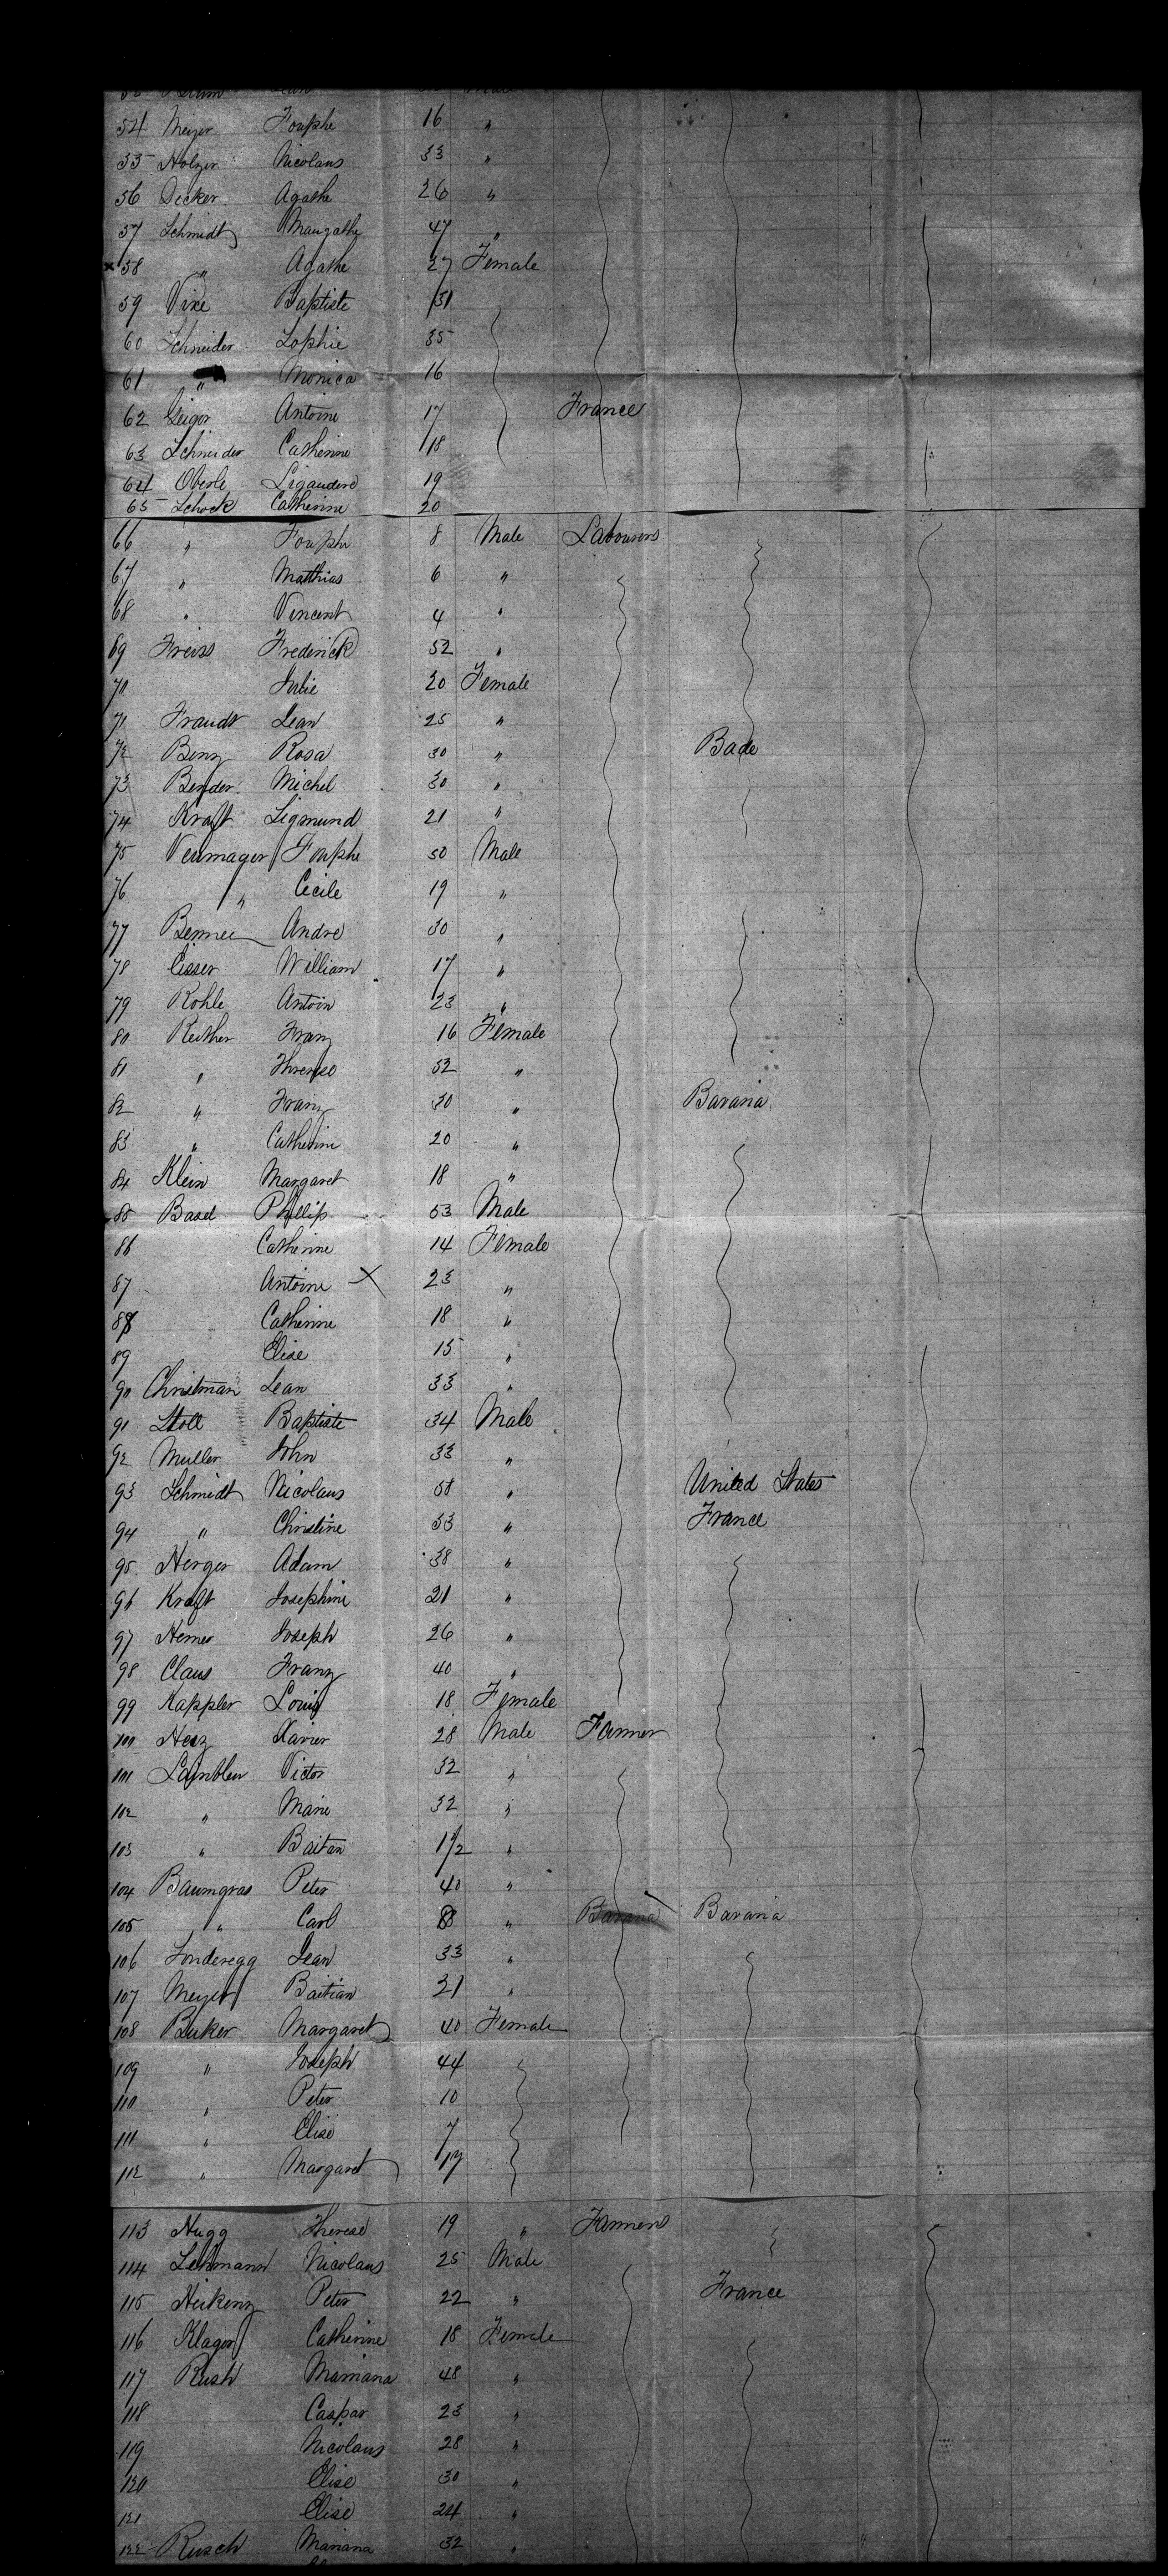 54 Meyer Fouphe 16 "
55 Holzer Nicolaus 33 "
56 Decker Agathe 26 "
57 Schmidt Maugathe 47 "
x 58 " Agathe 27 Female
59 Vixe Baptiste 31
60 Schneider Sophie 35
61 " Monica 16
62 Geiger Antoine 17 France
63 Schneider Catherine 18
64 Oberle Ligaudere 19
65 Schock Catherine 20
66 " Fouphe 8 Male Labourers
67 " Matthias 6 "
68 " Vincent 4 "
69 Freiss Frederick 52 "
70 Julie 20 Female
71 Fraudt Jean 25 "
72 Benz Rosa 30 " Bade
73 Bender Michel 30 "
74 Kraft Sigmund 21 "
75 Neumager Fouphe 50 Male
76 " Cecile 19 "
77 Bennee Andre 30 "
78 Cisser William 17 "
79 Rohle Antoin 23 "
80 Reither Franz 16 Female
81 " 52 "
82 " Franz 30 " Bavaria
83 " Catherine 20 "
84 Klein Margaret 18 "
85 Basel Phillip 53 Male
86 Catherine 14 Female
87 Antoine X 23 "
88 Catherine 18 "
89 Elise 15 "
90 Christman Jean 33 "
91 Stoll Baptiste 34 Male
92 Muller John 33 "
93 Schmidt Nicolaus 58 " United States
94 " Christine 53 " France
95 Herger Adam 38 "
96 Kraft Josephine 21 "
97 Hemer Joseph 26 "
98 Claus Franz 40 "
99 Kappler Louis 18 Female
100 Herz Xavier 28 Male Farmer
101 Lambleu Victor 32 "
102 " Marie 32 "
103 " Baitan 1 1/2 "
104 Baumgras Peter 40 "
105 " Carl 8 " Bavaria Bavaria
106 Sonderegg Jean 33 "
107 Meyer Baitian 21 "
108 Buker Margaret 40 Female
109 " Joseph 44
110 " Peter 10
111 " Elise 7
112 " Margaret 17
113 Hugg Therese 19 " Farmers
114 Lehmann Nicolaus 25 Male
115 Heikenz Peter 22 " France
116 Klager Catherine 18 Female
117 Rush Mariana 48 "
118 Caspar 23 "
119 Nicolaus 28 "
120 Elise 30 "
121 Elise 24 "
122 Rusch Mariana 32 "